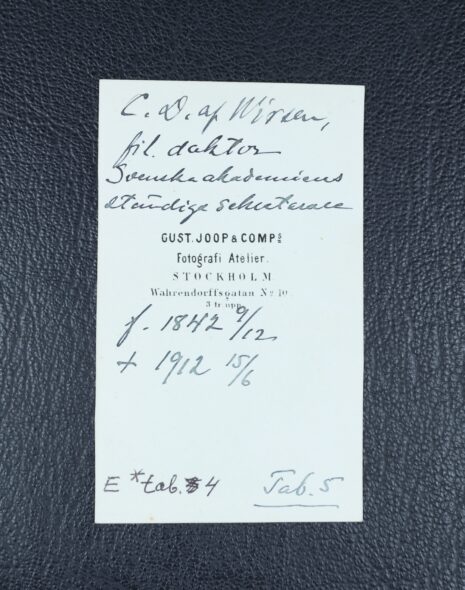 C. D. af Wirsén,
fil. doktor
Svenska akademiens
ständige sekreterare
GUST. JOOP & COMPS
Fotografi Atelier.
STOCKHOLM.
Wahrendorffsgatan No 10.
3 tr. upp.
f. 1842 9/12
+ 1912 15/6
E *tab. 4
Tab. 5